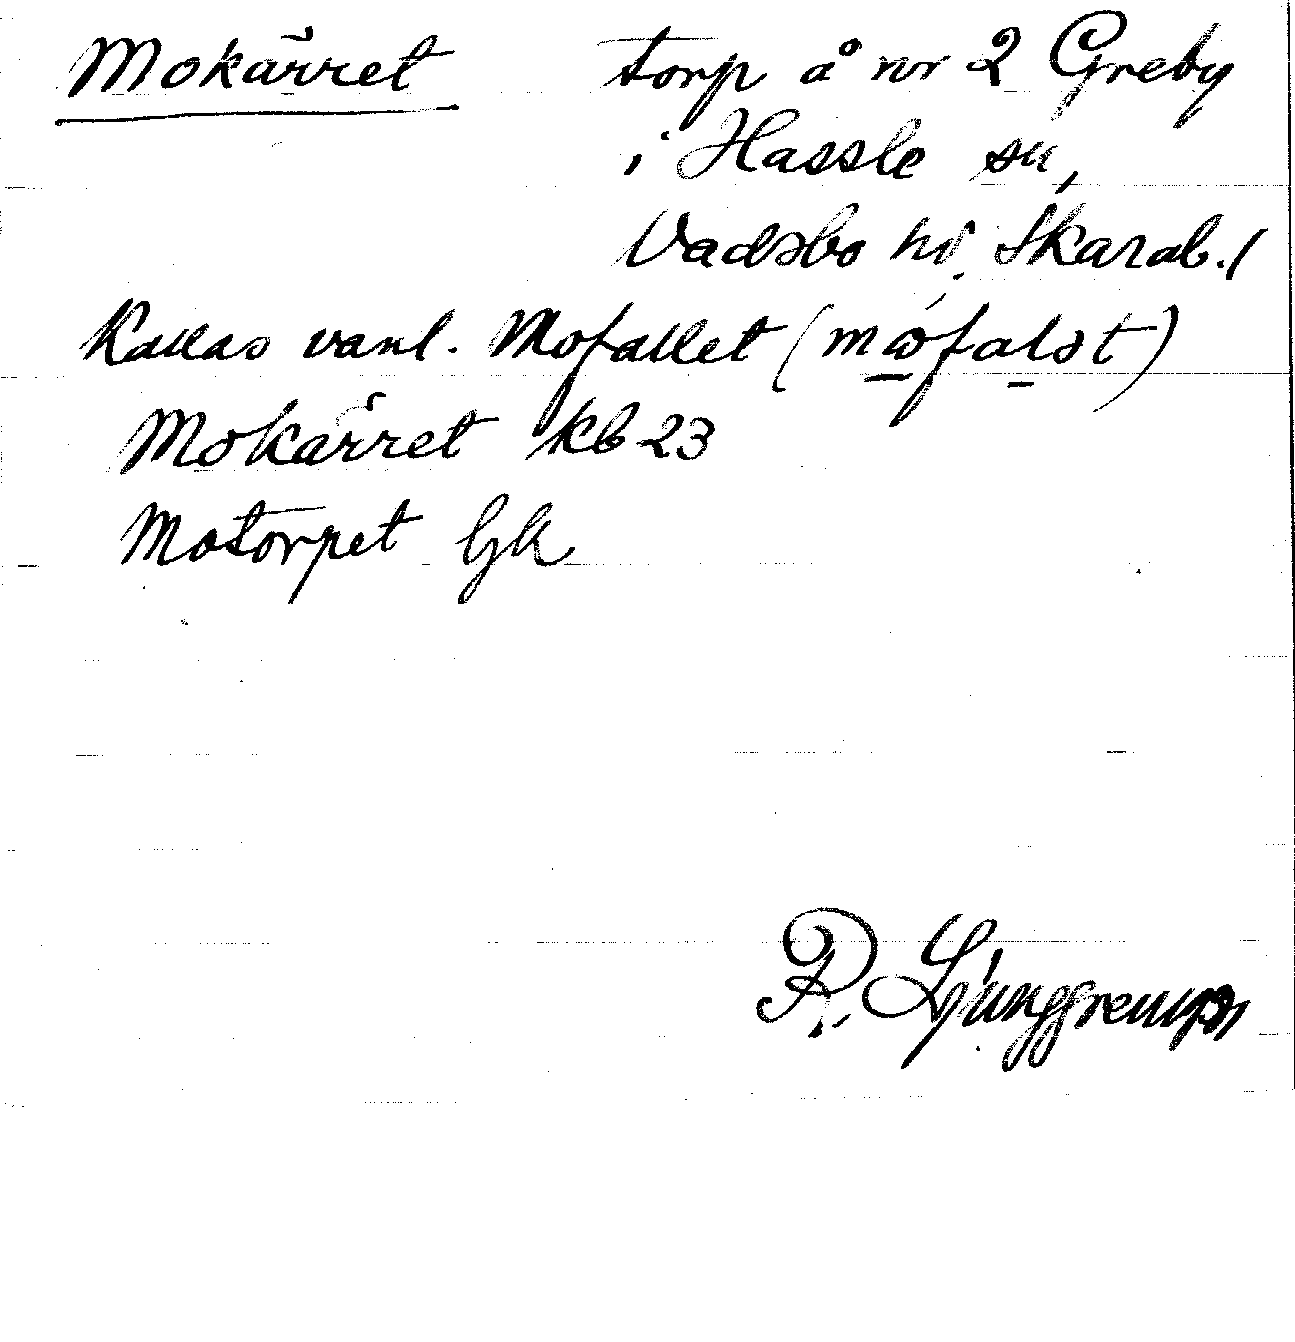 Mokärret torp å nr 2 Greby
i Hassle sn,
Vadsbo hd. Skarab.l
Kallas vanl. Mofallet (
Mokärret kb 23
Motorpet Gk
R. Ljunggren